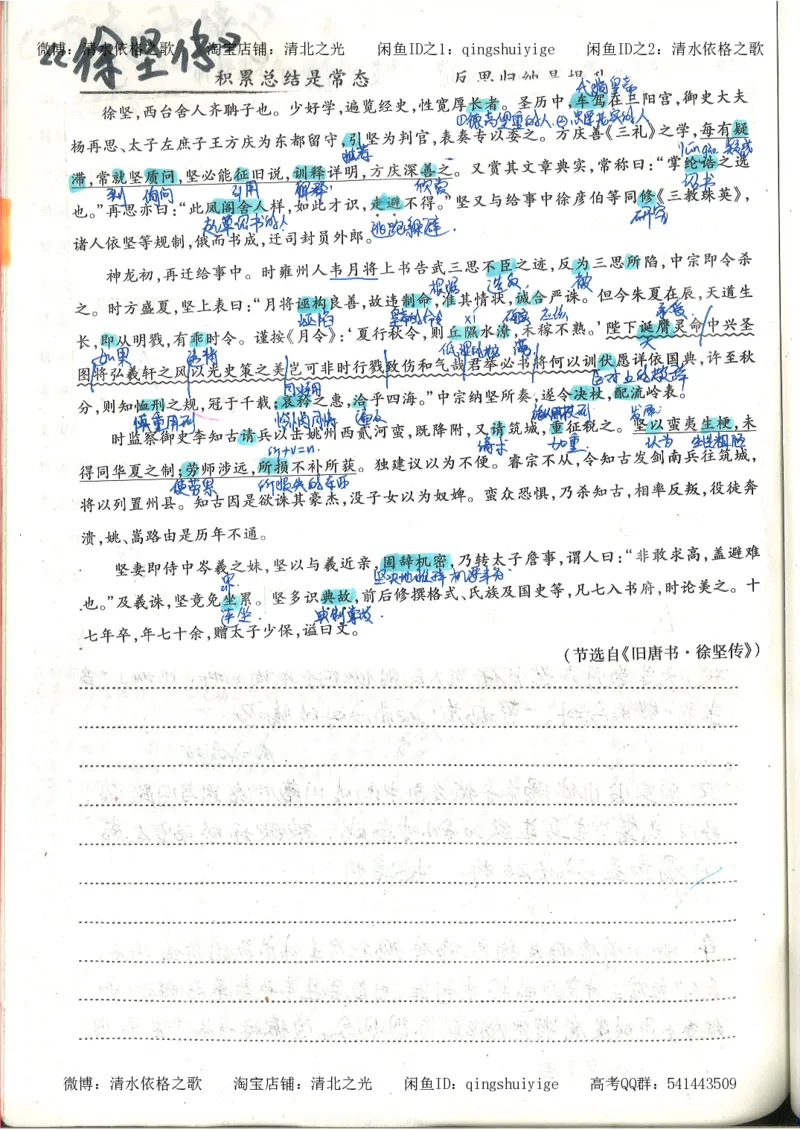 微博：清水依格之歌 淘宝店铺：清北之光 闲鱼ID之1：qingshuiyige 闲鱼ID之2：清水依格之歌
22 徐坚传
积累总结是常态 反思归纳是提升
代指皇帝
徐坚,西台舍人齐聃子也。少好学,遍览经史,性宽厚长者。圣历中,车驾在三阳宫,御史大夫
①德高望重的人 ②忠厚老实的人
杨再思、太子左庶子王方庆为东都留守,引坚为判官,表奏专以委之。方庆善《三礼》之学,每有疑
推荐
滞,常就坚质问,坚必能征旧说,训释详明,方庆深善之。又赏其文章典实,常称曰:“掌纶诰之选
到 询问 引用 解释 欣赏 诏书
也。”再思亦曰:“此凤阁舍人样,如此才识,走避不得。”坚又与给事中徐彦伯等同修《三教珠英》,
起草诏书的人 逃跑躲避 研究
诸人依坚等规制,俄而书成,迁司封员外郎。
神龙初,再迁给事中。时雍州人韦月将上书告武三思不臣之迹,反为三思所陷,中宗即令杀
根据 造反 被
之。时方盛夏,坚上表曰:“月将诬构良善,故违制命,准其情状,诚合严诛。但今朱夏在辰,天道生
诬陷 皇帝的命令 确实 应该
长,即从明戮,有乖时令。谨按《月令》:‘夏行秋令,则丘隰水潦,禾稼不熟。’陛下诞膺灵命,中兴圣
如果 违背 低湿的地 涝 大 承受
图,将弘羲轩之风,以光史策之美,岂可非时行戮,致伤和气哉?君举必书,将何以训?伏愿详依国典,许至秋
分,则知恤刑之规,冠于千载;哀矜之惠,洽乎四海。”中宗纳坚所奏,遂令决杖,配流岭表。
慎重用刑 怜悯同情 遍及 发配
时监察御史李知古请兵以击姚州西贰河蛮,既降附,又请筑城,重征税之。坚以蛮夷生梗,未
所+v=n. 请求 加重 认为 生性粗野
得同华夏之制;劳师涉远,所损不补所获。独建议以为不便。睿宗不从,令知古发剑南兵往筑城,
使劳累 所损失的东西
将以列置州县。知古因是欲诛其豪杰,没子女以为奴婢。蛮众恐惧,乃杀知古,相率反叛,役徒奔
溃,姚、嶲路由是历年不通。
坚妻即侍中岑羲之妹,坚以与羲近亲,固辞机密,乃转太子詹事,谓人曰:“非敢求高,盖避难
坚决地推辞
也。”及羲诛,坚竟免坐累。坚多识典故,前后修撰格式、氏族及国史等,凡七入书府,时论美之。十
连坐 典制掌故
七年卒,年七十余,赠太子少保,谥曰文。
(节选自《旧唐书·徐坚传》)
微博：清水依格之歌 淘宝店铺：清北之光 闲鱼ID：qingshuiyige 高考QQ群：541443509